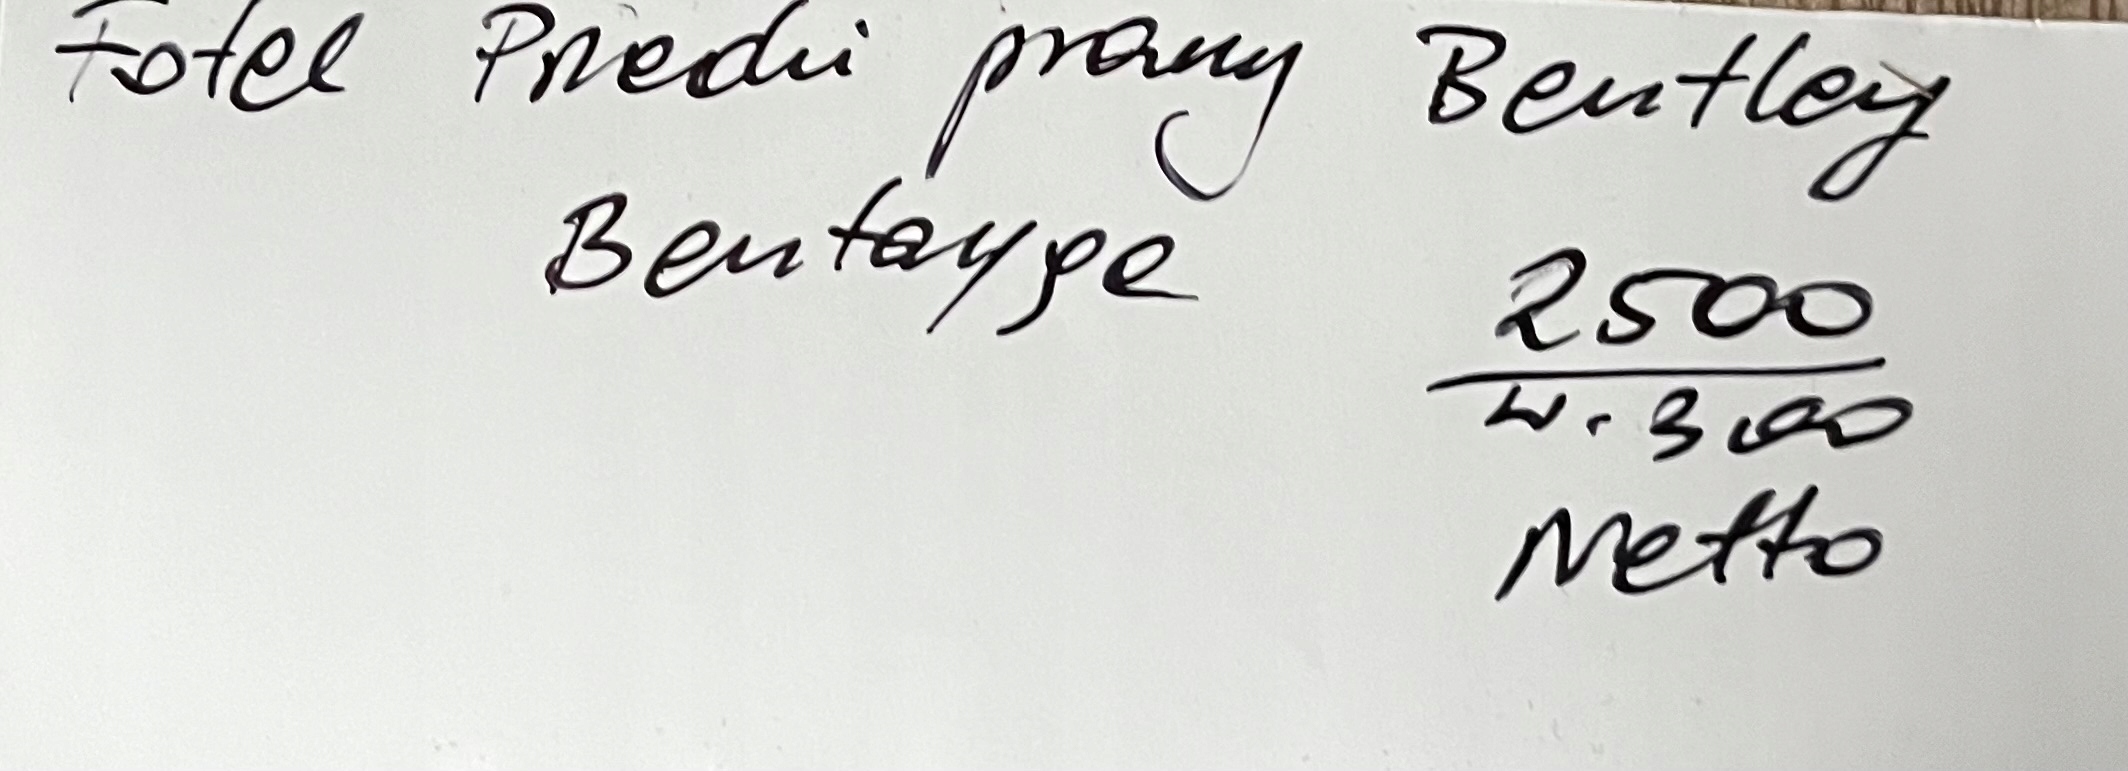 Fotel Przedni prawy Bentley
Bentayga
2500
W. 300
Netto